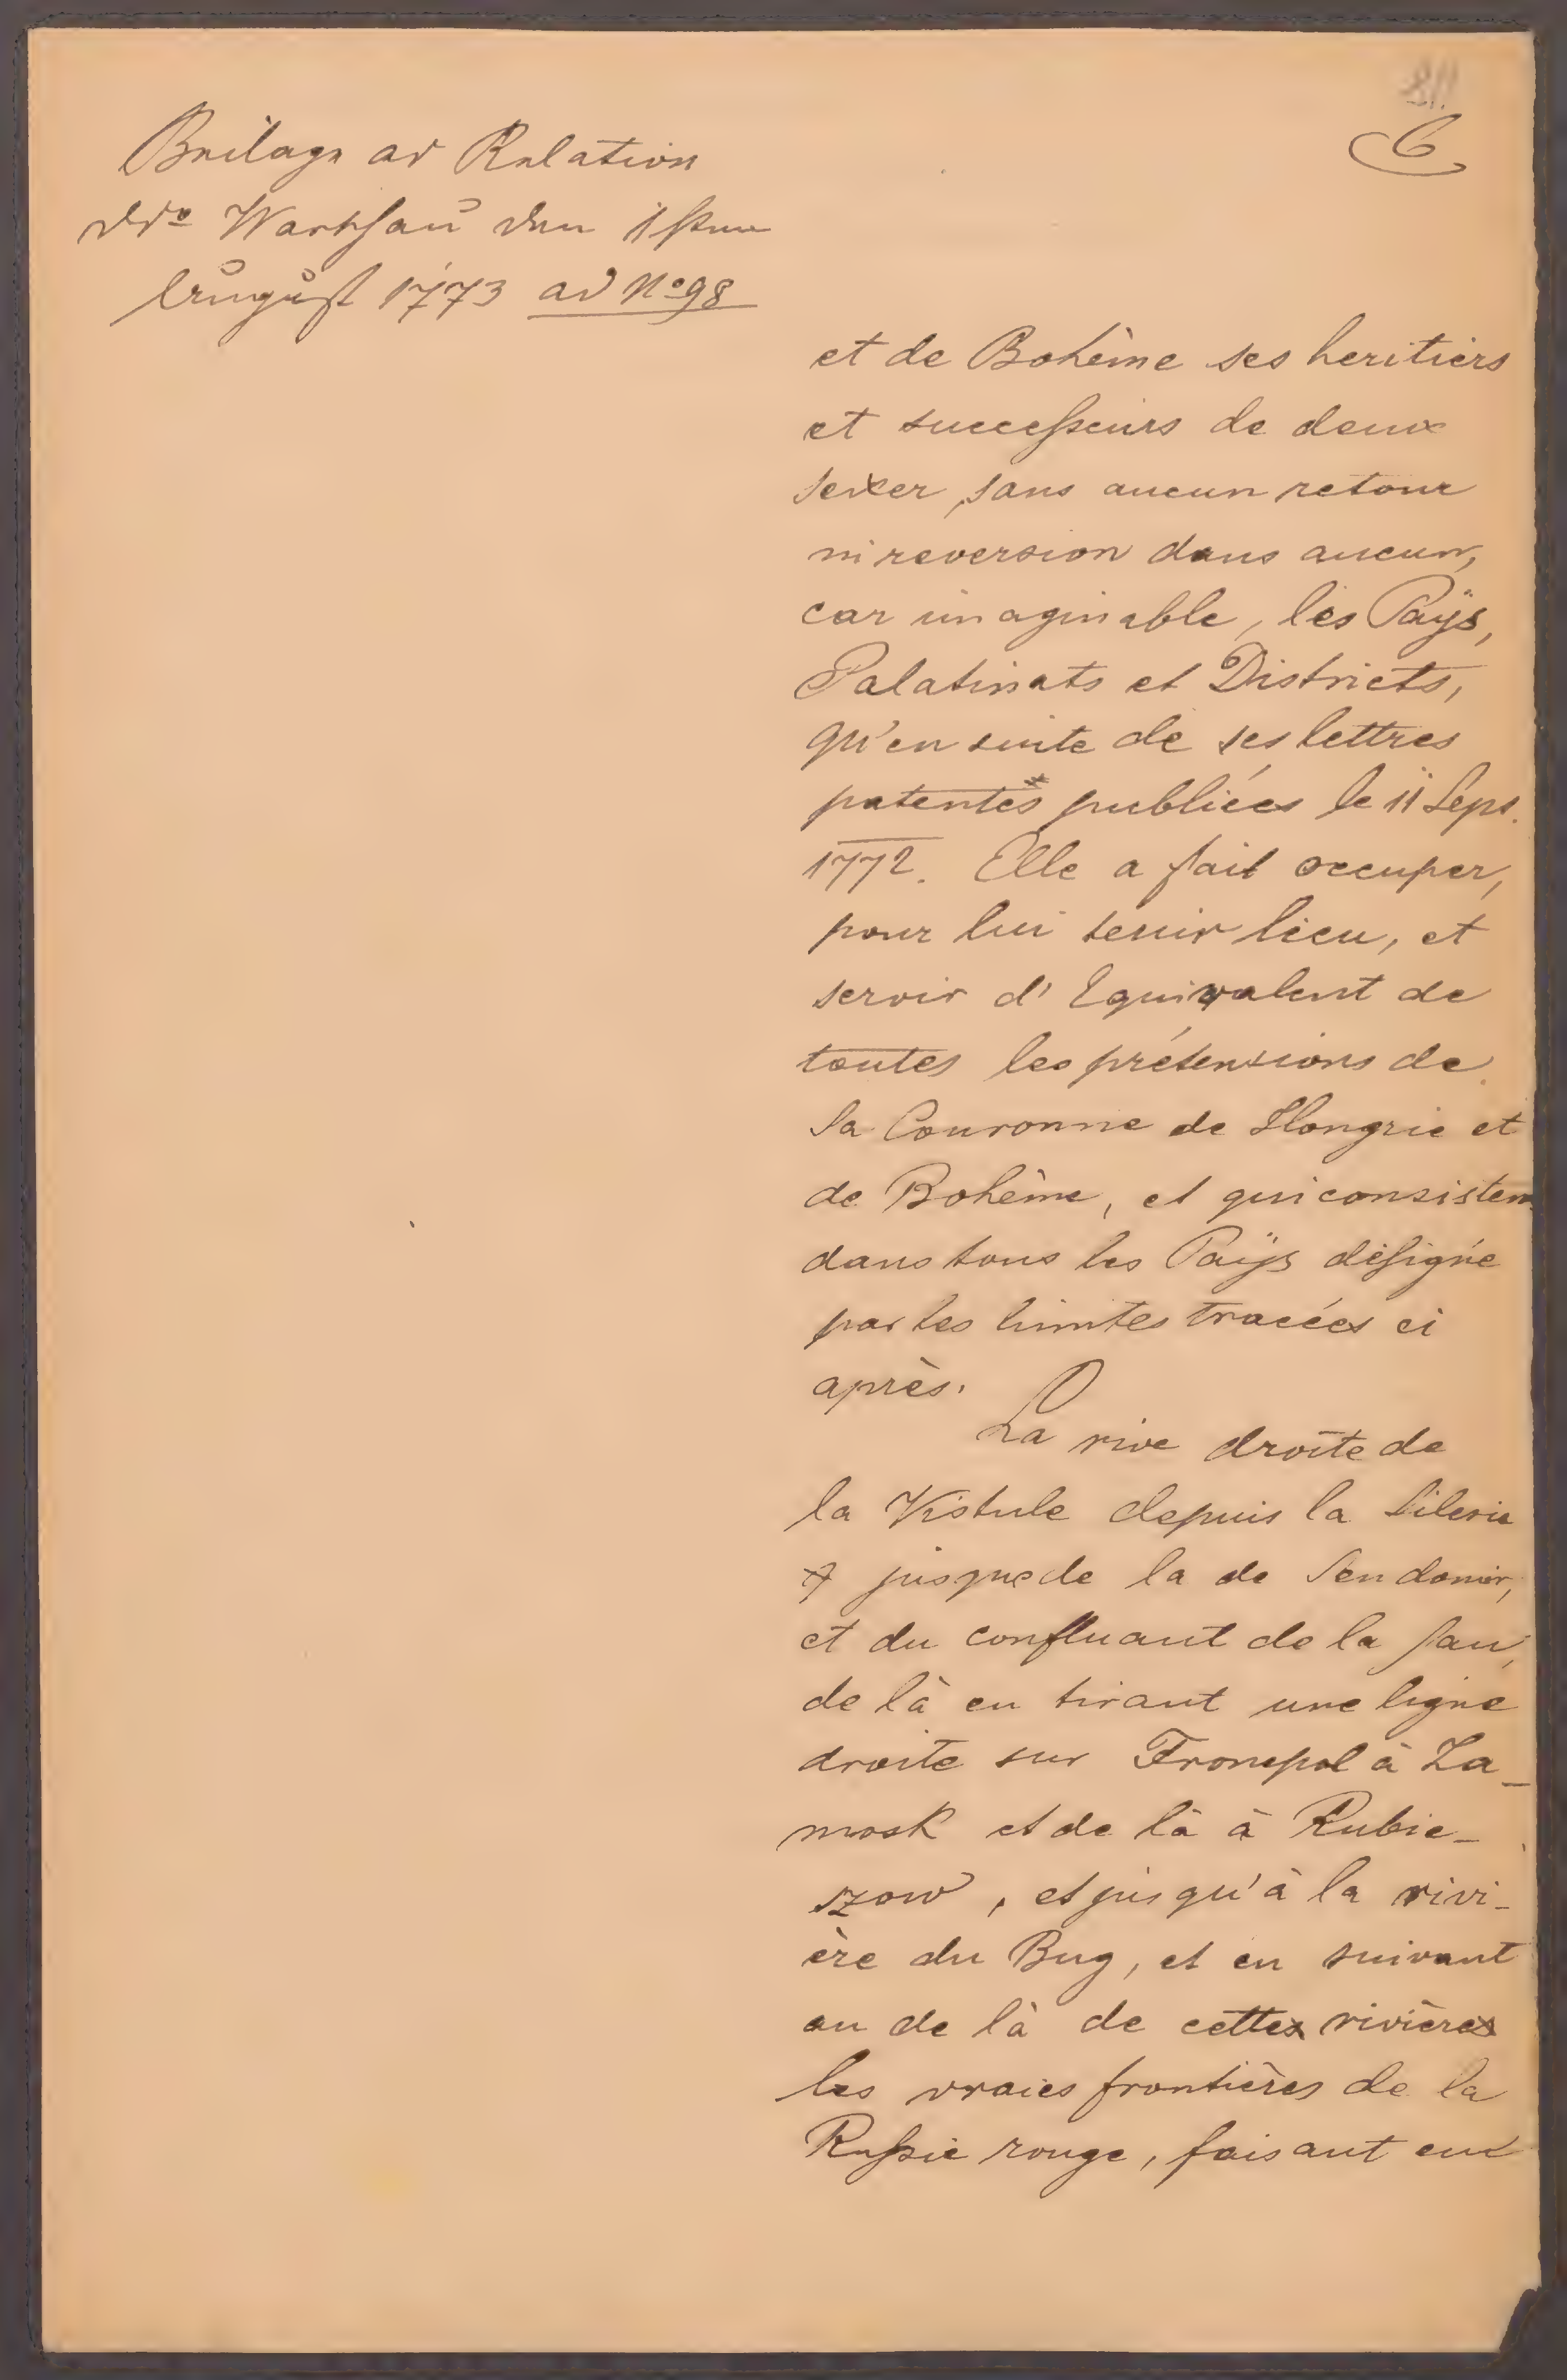 6
Beilage ad Relation
ddo Warschau den 1sten
August 1773 ad No 98
et de Bohème ses heritiers
et successeurs de deux
sexer, sans aucun retour
ni reversion dans aucun,
car imaginable, les Paÿs,
Palatinats et Districts,
qu'en suite de ses lettres
patentes publiées le 11 Seps.
1772. Elle a fait occuper,
pour lui tenir lieu, et
servir d'Equivalent de
toutes les prétensions de
sa Couronne de Hongrie et
de Bohème, et qui consistem
dans tous les Paÿs désigné
par les limites tracées ci
après.
La rive droite de
la Vistule depuis la Silesie
jusque de la de Sendomir,
et du confluant de la San,
de là en tirant une ligne
droite sur Fronepol à Za-
mosk et de là à Rubie-
szow, et jusqu'à la rivi-
ère du Bug, et en suivant
au de là de cette rivière
les vraies frontières de la
Russie rouge, faisant en